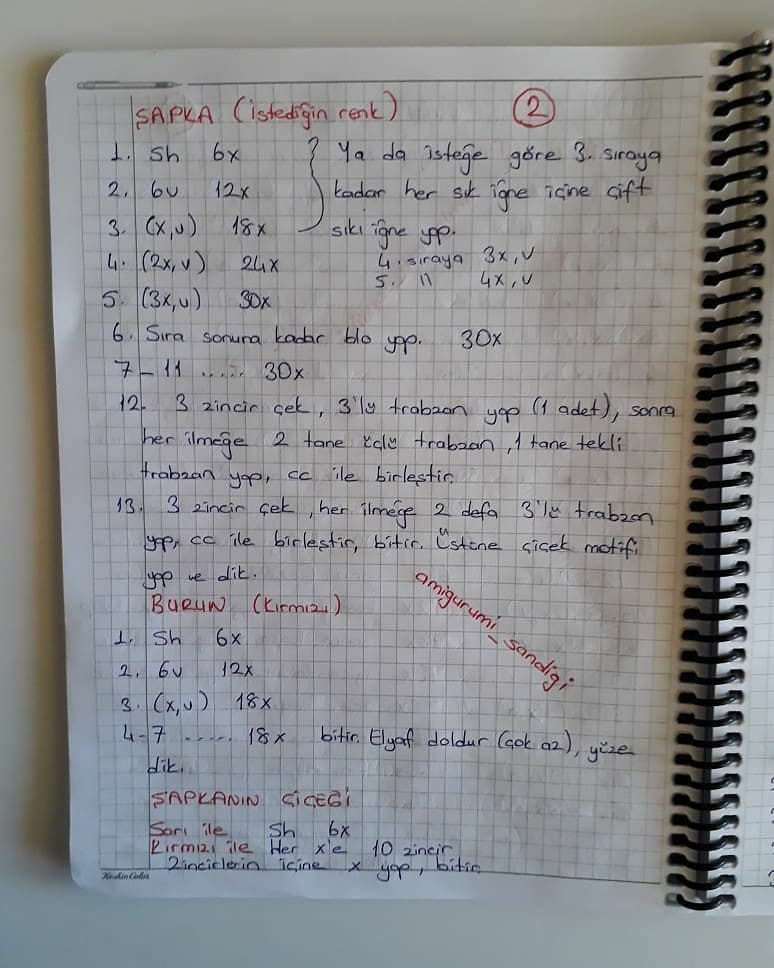 ŞAPKA (istediğin renk) 2
1. Sh 6x } Ya da isteğe göre 3. sıraya
2. 6v 12x kadar her sık iğne içine çift
3. (x,v) 18x sıkı iğne yap.
4. (2x,v) 24x 4. sıraya 3x,v
5. (3x,v) 30x 5. 11 4x,v
6. Sıra sonuna kadar blo yap. 30x
7-11 ..... 30x
12. 3 zincir çek, 3'lü trabzan yap (1 adet), sonra
her ilmeğe 2 tane üçlü trabzan, 1 tane tekli
trabzan yap, cc ile birleştir.
13. 3 zincir çek, her ilmeğe 2 defa 3'lü trabzan
yap, cc ile birleştir, bitir. Üstüne çiçek motifi
yap ve dik.
BURUN (Kırmızı)
amigurumi_sandigi
1. Sh 6x
2. 6v 12x
3. (x,v) 18x
4-7 ..... 18x bitir. Elyaf doldur (çok az), yüze
dik.
ŞAPKANIN ÇİÇEĞİ
Sarı ile Sh 6x
Kırmızı ile Her x'e 10 zincir
Zincirlerin içine x yap, bitir.
KeskinColor